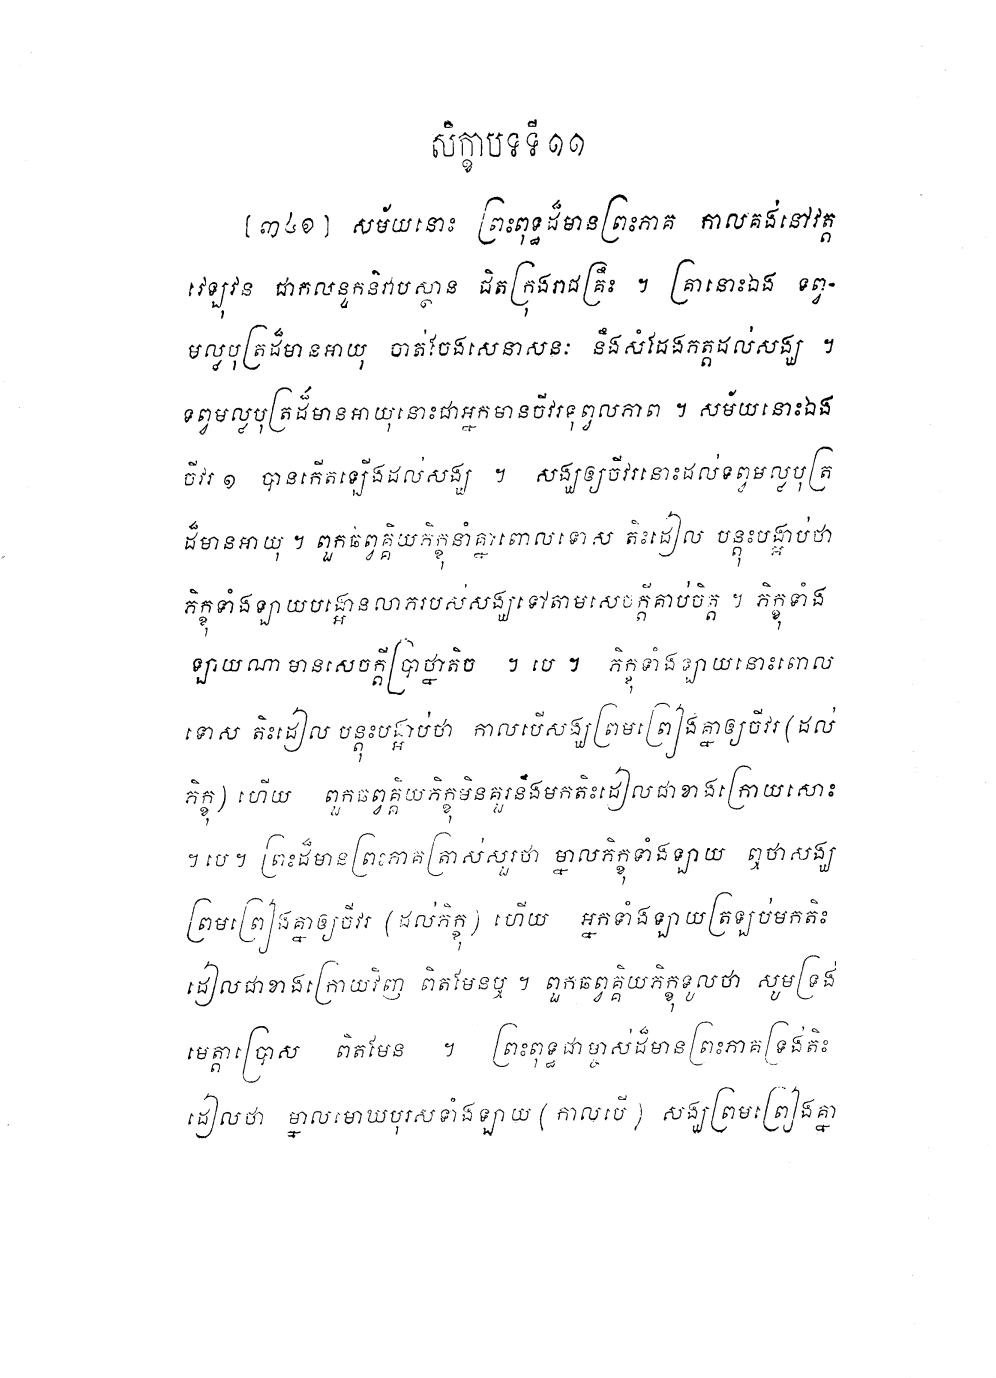 សិក្ខាបទទី១១
[៣៤១] សម័យនោះ ព្រះពុទ្ធដ៏មានព្រះភាគ កាលគង់នៅវត្ត
វេឡុវន ជាកលន្ទកនិវាបស្ថាន ជិតក្រុងរាជគ្រឹះ ។ គ្រានោះឯង ទព្វ-
មល្លបុត្រដ៏មានអាយុ ចាត់ចែងសេនាសនៈ នឹងសំដែងកត្តដល់សង្ឃ ។
ទព្វមល្លបុត្រដ៏មានអាយុនោះជាអ្នកមានចីវរទុព្វលភាព ។ សម័យនោះឯង
ចីវរ ១ បានកើតឡើងដល់សង្ឃ ។ សង្ឃឲ្យចីវរនោះដល់ទព្វមល្លបុត្រ
ដ៏មានអាយុ ។ ពួកឆព្វគ្គិយភិក្ខុនាំគ្នាពោលទោស តិះដៀល បន្តុះបង្អាប់ថា
ភិក្ខុទាំងឡាយបង្អោនលាភរបស់សង្ឃទៅតាមសេចក្តីគាប់ចិត្ត ។ ភិក្ខុទាំង
ឡាយណាមានសេចក្តីប្រាថ្នាតិច ។ បេ ។ ភិក្ខុទាំងឡាយនោះពោល
ទោស តិះដៀល បន្តុះបង្អាប់ថា កាលបើសង្ឃព្រមព្រៀងគ្នាឲ្យចីវរ (ដល់
ភិក្ខុ) ហើយ ពួកឆព្វគ្គិយភិក្ខុមិនគួរនឹងមកតិះដៀលជាខាងក្រោយសោះ
។ បេ ។ ព្រះដ៏មានព្រះភាគត្រាស់សួរថា ម្នាលភិក្ខុទាំងឡាយ ឮថាសង្ឃ
ព្រមព្រៀងគ្នាឲ្យចីវរ (ដល់ភិក្ខុ) ហើយ អ្នកទាំងឡាយត្រឡប់មកតិះ
ដៀលជាខាងក្រោយវិញ ពិតមែនឬ ។ ពួកឆព្វគ្គិយភិក្ខុទូលថា សូមទ្រង់
មេត្តាប្រោស ពិតមែន ។ ព្រះពុទ្ធជាម្ចាស់ដ៏មានព្រះភាគទ្រង់តិះ
ដៀលថា ម្នាលមោឃបុរសទាំងឡាយ (កាលបើ) សង្ឃព្រមព្រៀងគ្នា